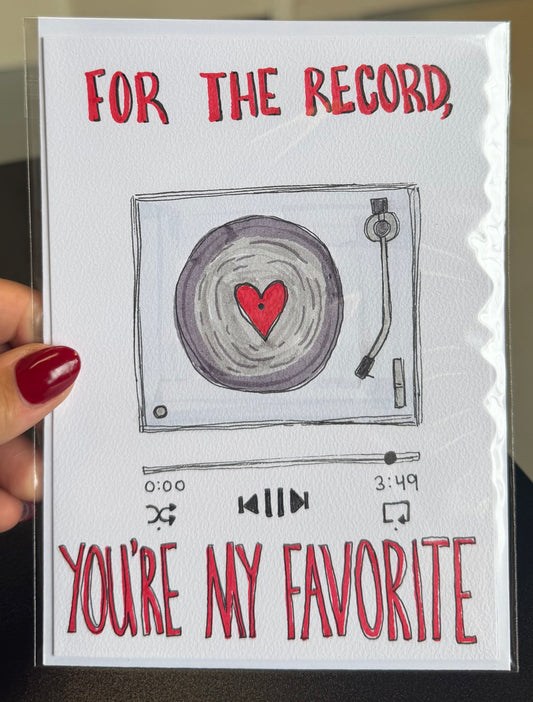 FOR THE RECORD,
0:00 3:49
YOU'RE MY FAVORITE